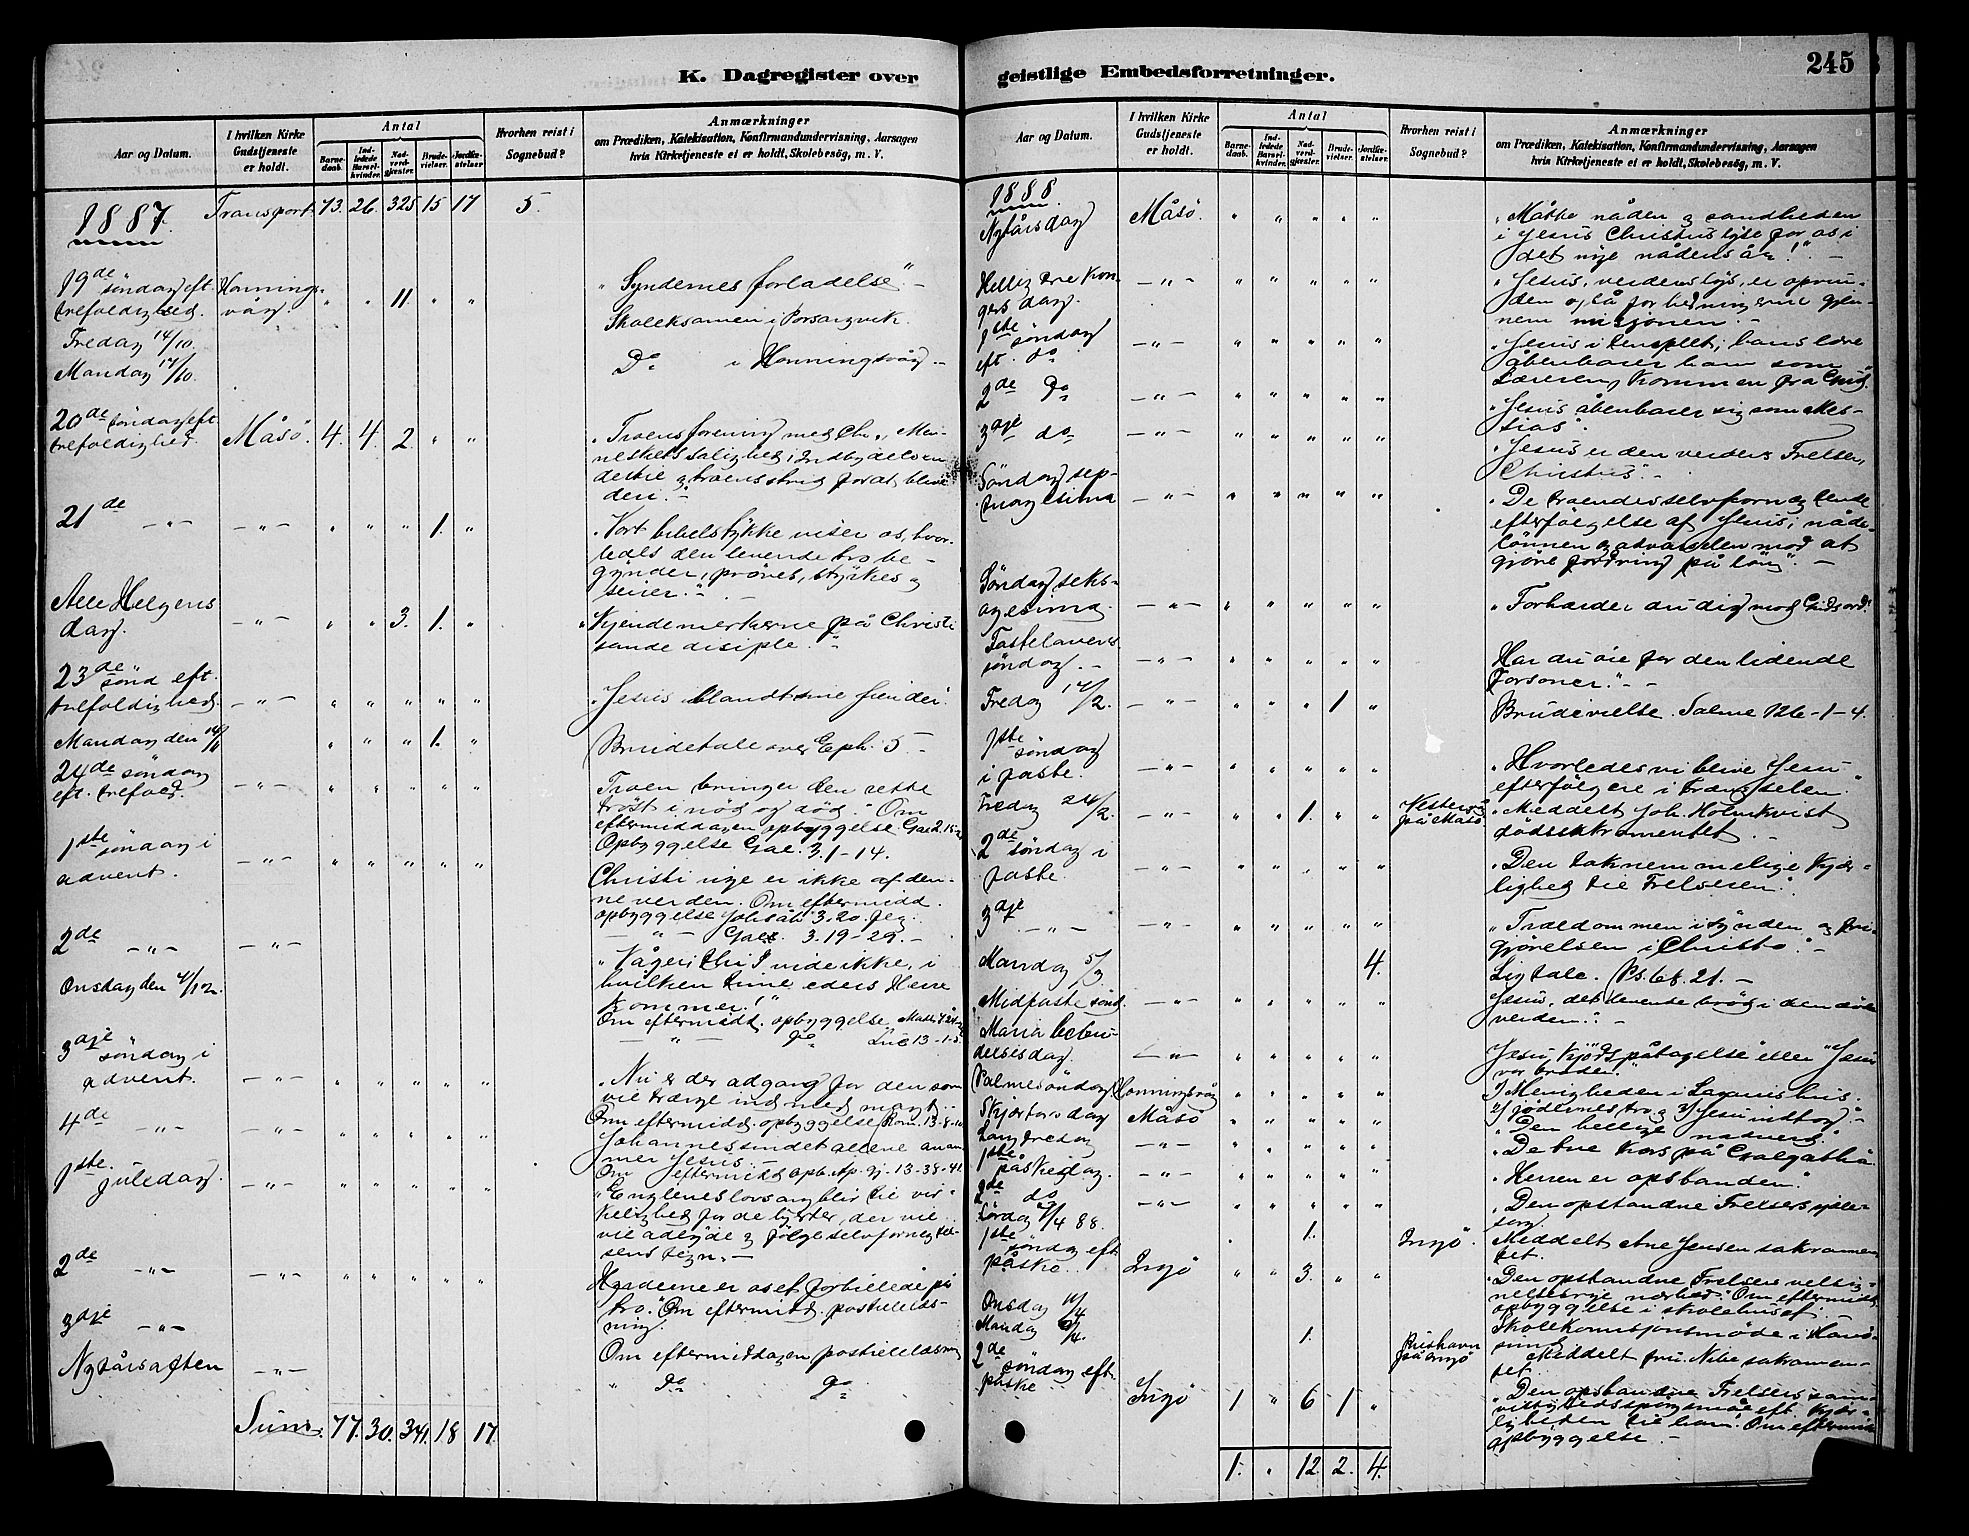 K. Dagregister over
geistlige Embedsforretninger.
245
Aar og Datum.
I hvilken Kirke Gudstjeneste er holdt.
Antal
Barnedaab.
Indledede Barselkvinder.
Nadverdgjæster.
Brudevielser.
Jordfæstelser.
Hvorhen reist i Sognebud?
Anmærkninger
om Prædiken, Katekisation, Konfirmandundervisning, Aarsagen
hvis Kirketjeneste ei er holdt, Skolebesög, m. V.
1887. Transport. 73. 26. 325 15 17 5.
19de söndag eft. trefoldighed. Honningsvåg. " " 11. " " "Syndernes forladelse." -
Fredag 14/10. Skoleksamen i Porsangvik.
Mandag 17/10. Do i Honningsvåg -
20de söndag eft. trefoldighed. Måsö. 4. 4. 2. " "
21de - " - - " - " " " 1. " "Vort bibelstykke viser os, hvorledes den levende tro begynder, pröves, styrkes og seirer." -
Alle Helgens dag. - " - " " 3. 1. " "Kjendemerkerne på Christi sande disiple."
23de sönd eft. trefoldighed. - " - " " " " " "Jesus blandt sine fiender."
Mandag den 14/11 " " " 1. " Brudetale over Eph. 5 -
24de söndag eft. trefold. - " - " " " " " Troen bringer den rette tröst i nöd og död." Om eftermiddagen opbyggelse Gal 2.
Opbyggelse Gal. 3.1-14.
1ste söndag i advent. - " - " " " " " Christi rige er ikke af denne verden. Om eftermidd. opbyggelse Joh åb 3.20.
- " - Gal. 3.19-29. -
2de - " - - " - "Våger, thi I vide ikke, i hvilken time eders Herre kommer!"
Onsdag den /12. Om eftermidd. opbyggelse Matth
- " - Do Luc 13-1-5.
3dje söndag i advent. - " - " " " " " "Nu er der adgang for den som vil trænge ind med magt." -
Om eftermidd. opbyggelse Rom. 13-8-10
4de - " - - " - " " " " " Johannes
Om eftermidd opb. Ap. gj. 13-38-41
1ste juledag. - " - " " " " " "Englenes lovsang blir til virkelighed for de hjerter, der vil adlyde og fölge selvfornegtelsens tegn. -
2de - " - - " - " " " " " Hyrderne er os et forbillede på tro." Om eftermidd. postillelæsning.
3dje - " - Om eftermiddagen postillelæsning
Nytårsaften - " - " Do Do
Sum. 77. 30. 341. 18 17.
Aar og Datum.
I hvilken Kirke Gudstjeneste er holdt.
Antal
Barnedaab.
Indledede Barselkvinder.
Nadverdgjæster.
Brudevielser.
Jordfæstelser.
Hvorhen reist i Sognebud?
Anmærkninger
om Prædiken, Katekisation, Konfirmandundervisning, Aarsagen
hvis Kirketjeneste ei er holdt, Skolebesög, m. V.
1888.
Nytårsdag Måsö. " " " " " "Måtte nåden og sandheden i Jesus Christus lyse for os i det nye nådens år!" -
Hellig Tre Kongers dag. - " - " " " " " "Jesus, verdens lys, er oprunden også for hedningerne gjennem misjonen. -
1ste söndag eft. do - " - " " " " " "Jesus i templet; hans lære åbenbarer ham som Læreren, kommen fra Gud.
2de Do - " - " " " " " "Jesus åbenbarer sig som Messias".
3dje do - " - " " " " " "Jesus er den verdens Frelser, Christus". -
Söndag septuagesima - " - " " " " " "De troendes selvfornegtende efterfölgelse af Jesus; nådelönnen og advarselen mod at gjöre fordring på lön". -
Söndag seksagesima. - " - " " " " " "Forhærder du dig mod Guds ord?
Fastelavens söndag. - - " - " " " " " Har du öie for den lidende Forsoner." - -
Fredag 17/2. - " - " " " 1 " Brudevielse. Salme 126-1-4.
1ste söndag i faste. - " - " " " " " "Hvorledes vi blive Jesu efterfölgere i trængselen."
Fredag 24/2. - " - " " 1. " " på Måsö "Meddelt Joh. Holmkvist dödssakramentet. -
2de söndag i faste. - " - " " " " " "Den taknemmelige kjærlighed til Frelseren."
3dje - " - - " - " " " " " "Trældommen i synden og frigjörelsen i Christo." -
Mandag 5/3 4. Ligtale. Ps. 68. 21. -
Midfaste sönd. - " - " " " " " Jesus, det levende bröd i den döde verden." -
Maria bebudelsesdag. - " - " " " " " Jesu kjöds påtagelse eller "Jesus vor broder."
Palmesöndag. Honningsvåg " " " " " 1/ Menigheden i Lazarus's hus. 2/ jödernes tro og 3/ Jesu indtog." -
Skjærtorsdag Måsö " " " " " "Den hellige nadverd."
Langfredag - " - " " " " " "De tre kors på Golgatha
1ste påskedag. - " - " " " " " "Herren er opstanden."
2de do - " - " " " " " "Den opstandne Frelsers sjælesorg.
Lördag 7/4 88. 1. Ingö. Meddelt Ane Jensen sakramentet.
1ste söndag eft. påske. Ingö " " 3. " " "Den opstandne Frelsers velsignelsesrige nærhed". Om eftermidd. opbyggelse i skolehuset.
Onsdag 11/4 Skolekomisjonsmöde i
Mandag /4. 1. på Ingö Meddelt fru. Nibe sakramentet.
2de söndag eft. påske Ingö 1 " 6 1 " "Den opstandne Frelsers samvittighedsspörgsmål eft. kjærligheden til ham." Om eftermid opbyggelse. -
1. " 12. 2. 4.